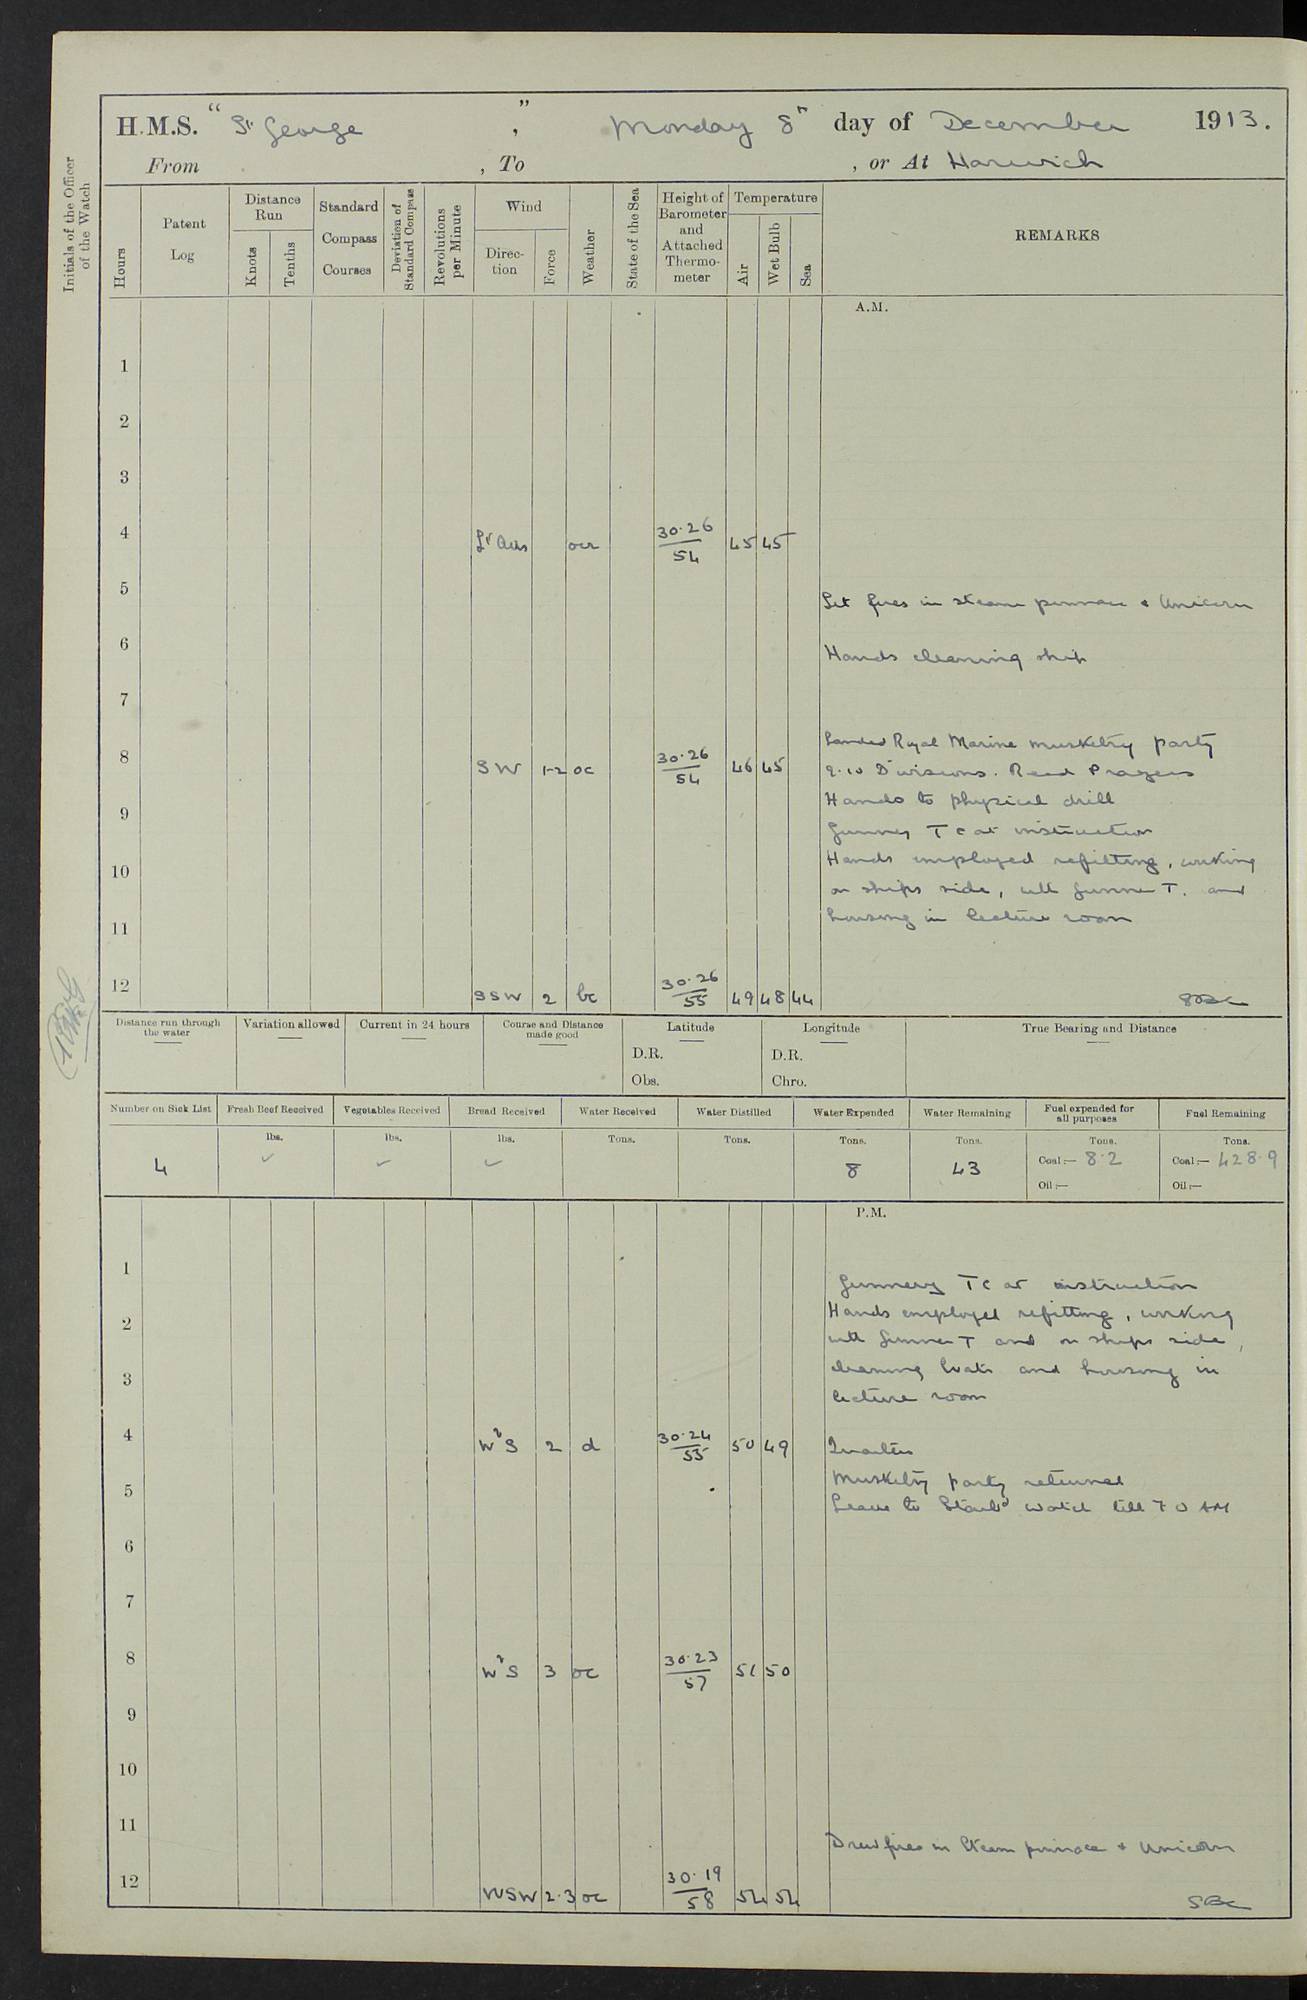 H.M.S. "St George", Monday 8th day of December 1913.
From , To , or At Harwich
Initials of the Officer of the Watch
Hours
Patent Log
Distance Run
Knots
Tenths
Standard Compass Courses
Deviation of Standard Compass
Revolutions per Minute
Wind
Direction
Force
Weather
State of the Sea
Height of Barometer and Attached Thermometer
Temperature
Air
Wet Bulb
Sea
REMARKS
A.M.
1
2
3
4 Lt Airs 30.26 54 45 45
5 Lit fires in steam pinnace & Unicorn
6 Hands cleaning ship
7
Landed Royal Marine musketry party
8 SW 1-2 oc 30.26 54 46 45
9.10 Divisions. Read Prayers
Hands to physical drill
9
Gunnery TC at instruction
10 Hands employed refitting, working
on ships side, with Gunner T. and
housing in lecture room
11
12 SSW 2 bc 30.26 55 49 48 44
Distance run through the water
Variation allowed
Current in 24 hours
Course and Distance made good
Latitude
D.R.
Obs.
Longitude
D.R.
Chro.
True Bearing and Distance
Number on Sick List
Fresh Beef Received
Vegetables Received
Bread Received
Water Received
Water Distilled
Water Expended
Water Remaining
Fuel expended for all purposes
Fuel Remaining
lbs. lbs. lbs. Tons. Tons. Tons. Tons. Tons. Tons.
4 ✓ ✓ ✓ 8 43 Coal:— 8.2 Coal:— 428.9
Oil:— Oil:—
P.M.
1
Gunnery TC at instruction
2 Hands employed refitting, working
with Gunner T and on ships side,
3 cleaning boats and housing in
lecture room
4 WbS 2 d 30.24 55 50 49 Quarters
Musketry party returned
5
Leave to Starbd watch till 7 0 AM
6
7
8 WbS 3 oc 30.23 57 51 50
9
10
11
Drew fires in Steam pinnace & Unicorn
12 WSW 2.3 oc 30.19 58 54 54
SBC